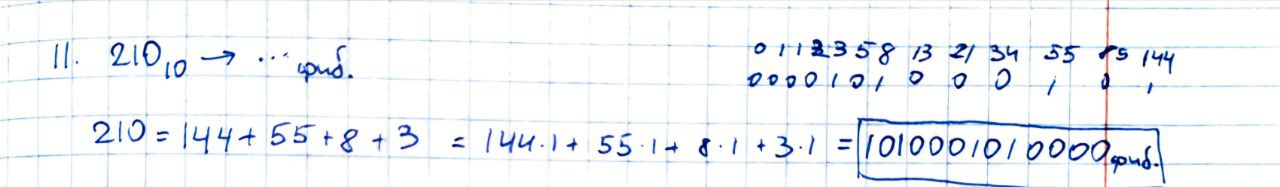 11. 210₁₀ → ... фиб.
0 1 1 2 3 5 8 13 21 34 55 89 144
0 0 0 0 1 0 1 0 0 0 1 0 1
210 = 144 + 55 + 8 + 3 = 144·1 + 55·1 + 8·1 + 3·1 = 1010001010000фиб.